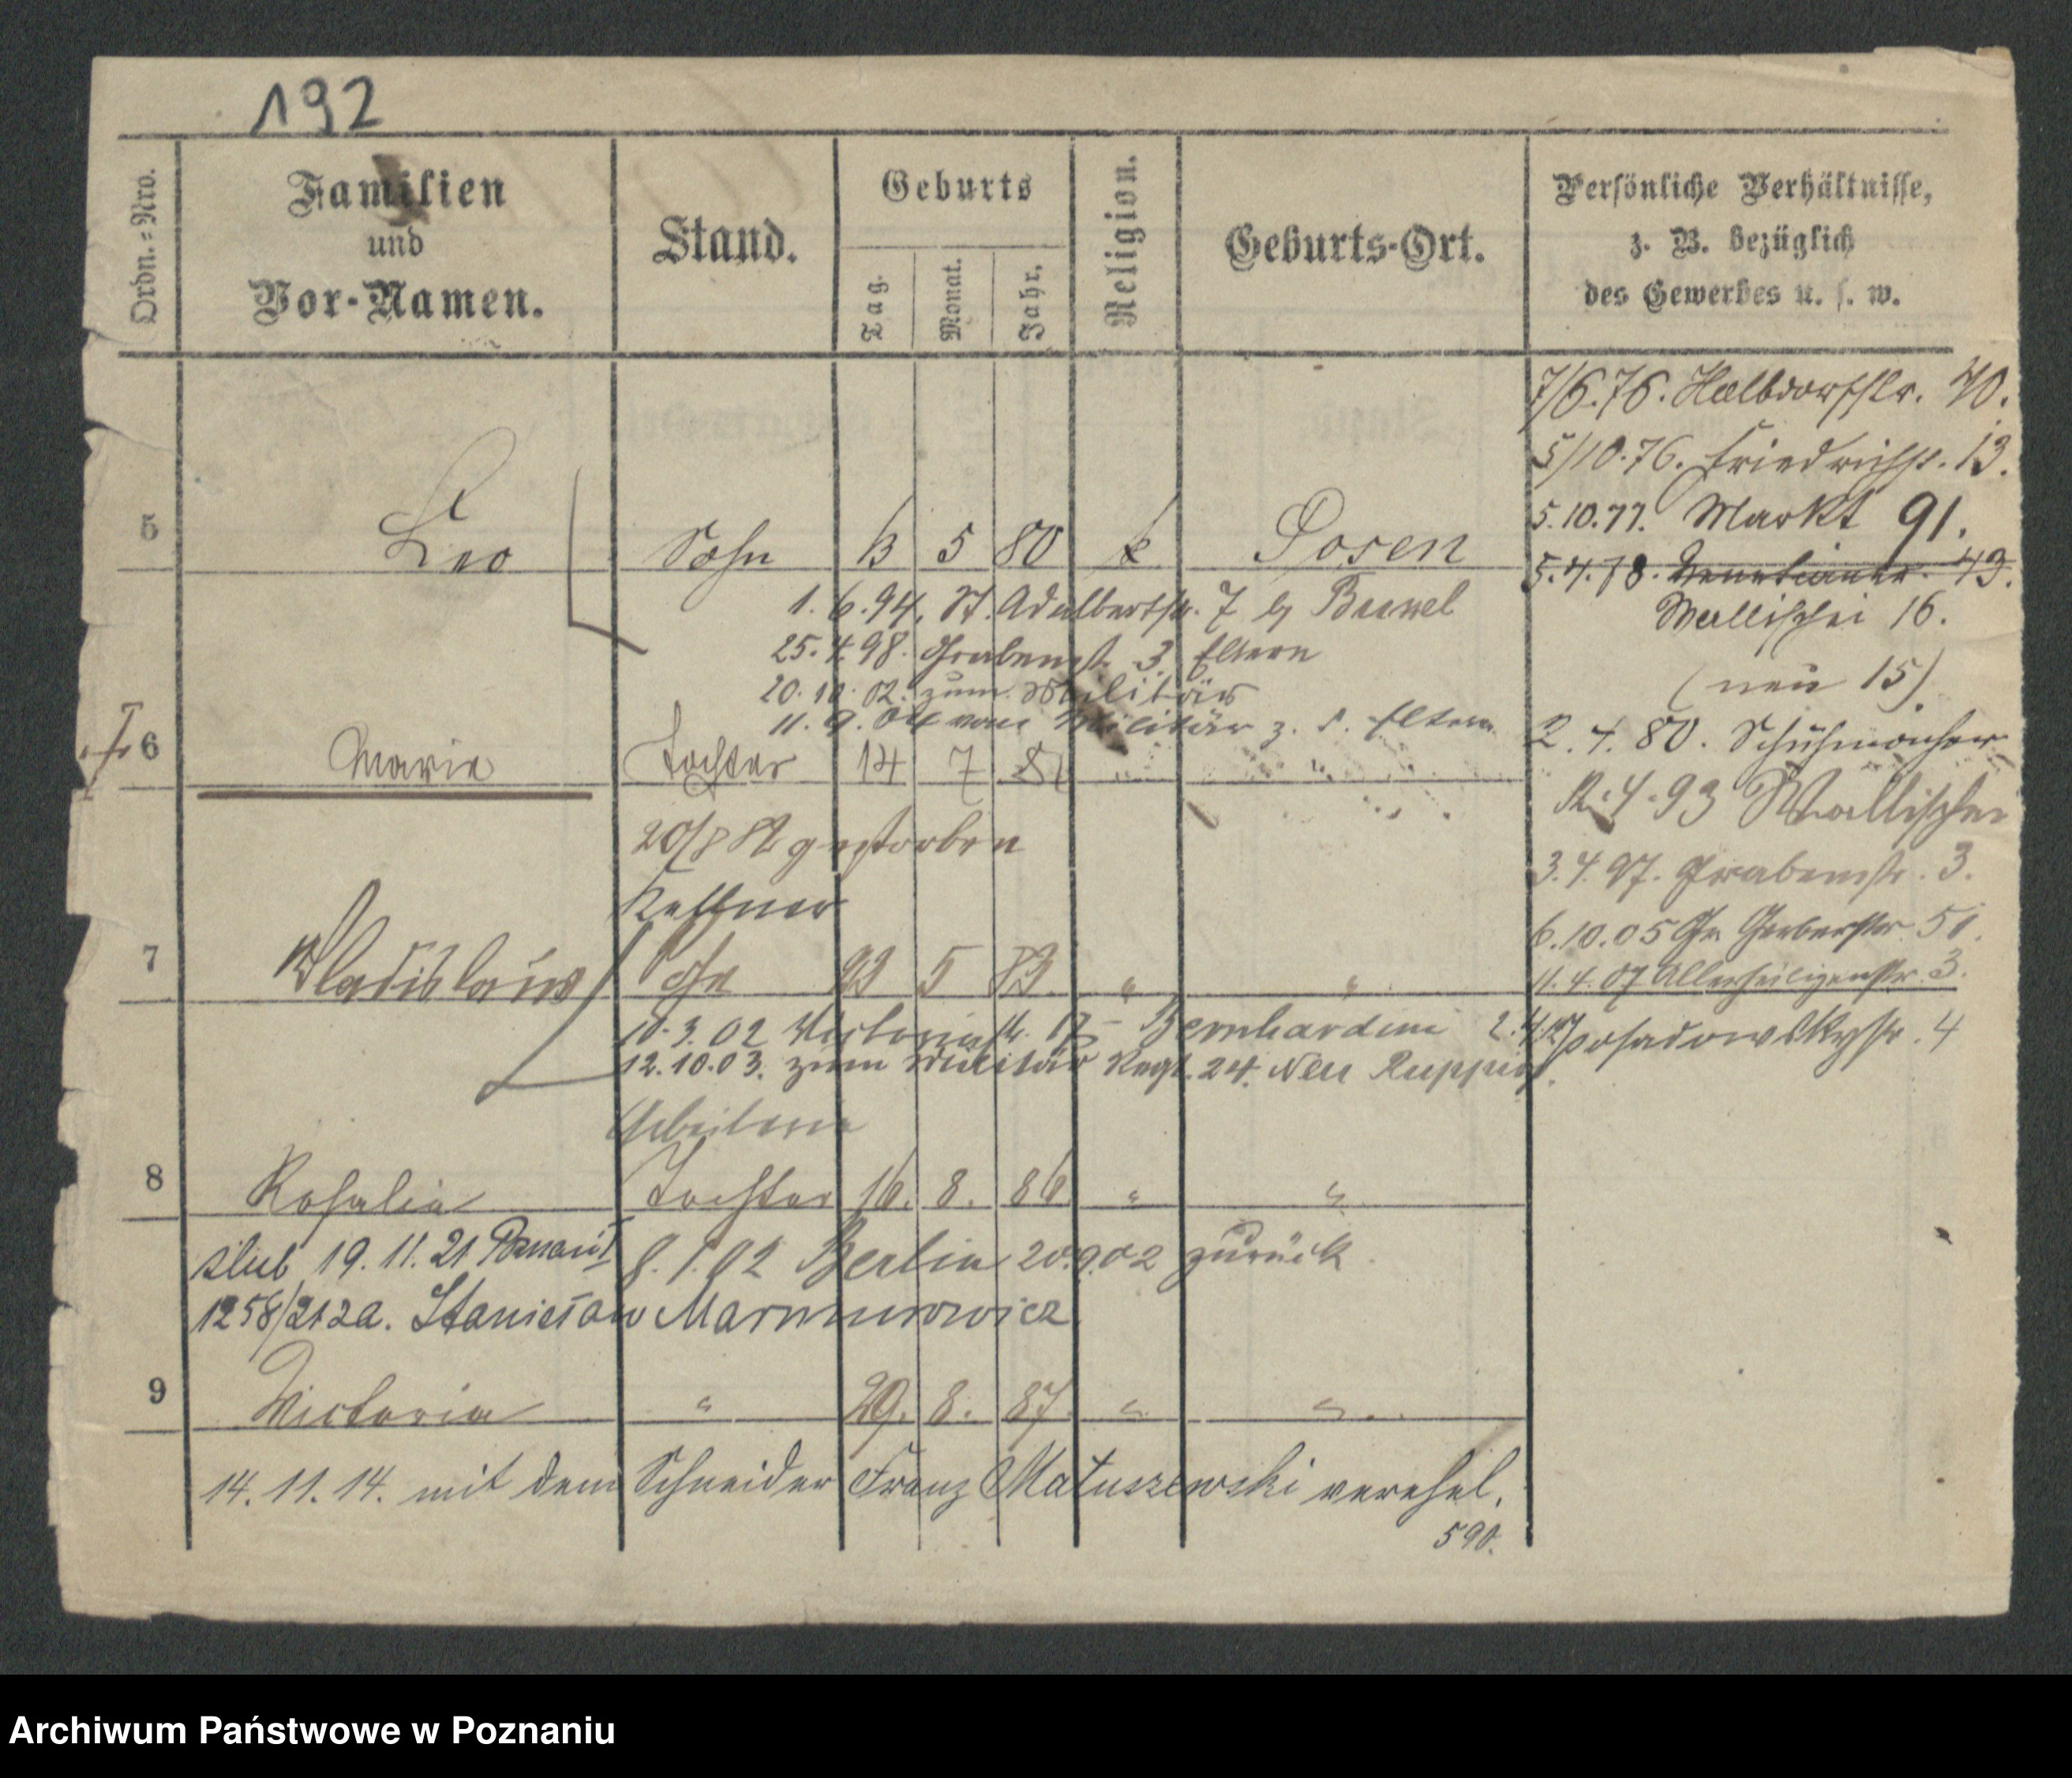 192
Ordn.=Nro.
Familien
und
Vor-Namen.
Stand.
Geburts
Tag.
Monat.
Jahr.
Religion.
Geburts-Ort.
Persönliche Verhältnisse,
z. B. bezüglich
des Gewerbes u. s. w.
7/6.76. Halbdorfstr. 40.
5/10.76. Friedrichstr. 13.
5.10.77. Markt 91.
5.4.78. Venetianer 43.
Wallischei 16.
(neu 15)
2.4.80. Schuhmacher
4.93 Wallischei
3.4.97. Grabenstr. 3.
6.10.05 Gr. Gerberstr. 51.
11.4.07 Allerheiligenstr. 3.
Posadowskystr. 4
5 Leo Sohn 5 80 k Posen
1.6.94. St. Adalbertstr. 7
25.4.98. Grabenstr. 3 Eltern
20.10.02. zum Militär
11.9.04 vom Militär z. d. Eltern
6 Marie Tochter 14 7 "
gestorben
Kellner
7 Wladislaus Sohn 5 83. " "
10.3.02 Victoriastr. Bernhardini
12.10.03. zum Militär Regt. 24. Neu Ruppin.
Arbeiterin
8 Rosalia Tochter 16. 8. 86 " "
ślub 19.11.21 Poznań I
Berlin 20.9.02 zurück
1258/212a. Stanisław Marmurowicz
9 Victoria " 29. 8. 87 " "
14.11.14. mit dem Schneider Franz Matuszewski verehel.
Archiwum Państwowe w Poznaniu